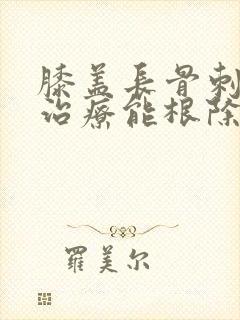 膝盖長骨刺
治療能根除
羅美尔